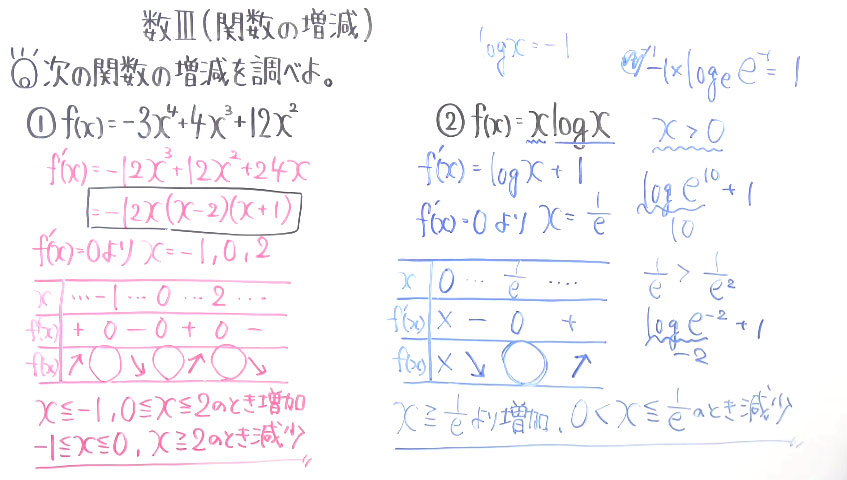 数Ⅲ(関数の増減)
次の関数の増減を調べよ。
① f(x)=-3x⁴+4x³+12x²
f'(x)=-12x³+12x²+24x
=-12x(x-2)(x+1)
f'(x)=0より x=-1,0,2
x …-1…0…2…
f'(x) + 0 - 0 + 0 -
f(x) ↗ ◯ ↘ ◯ ↗ ◯ ↘
x≦-1,0≦x≦2のとき増加
-1≦x≦0,x≧2のとき減少
② f(x)=xlogx
f'(x)=logx+1
f'(x)=0より x=1/e
x 0 … 1/e ….
f'(x) × - 0 +
f(x) × ↘ ◯ ↗
x≧1/eより増加、0<x≦1/eのとき減少
logx=-1
-1×logₑe⁻¹=1
x>0
loge¹⁰+1
10
1/e>1/e²
loge⁻²+1
-2